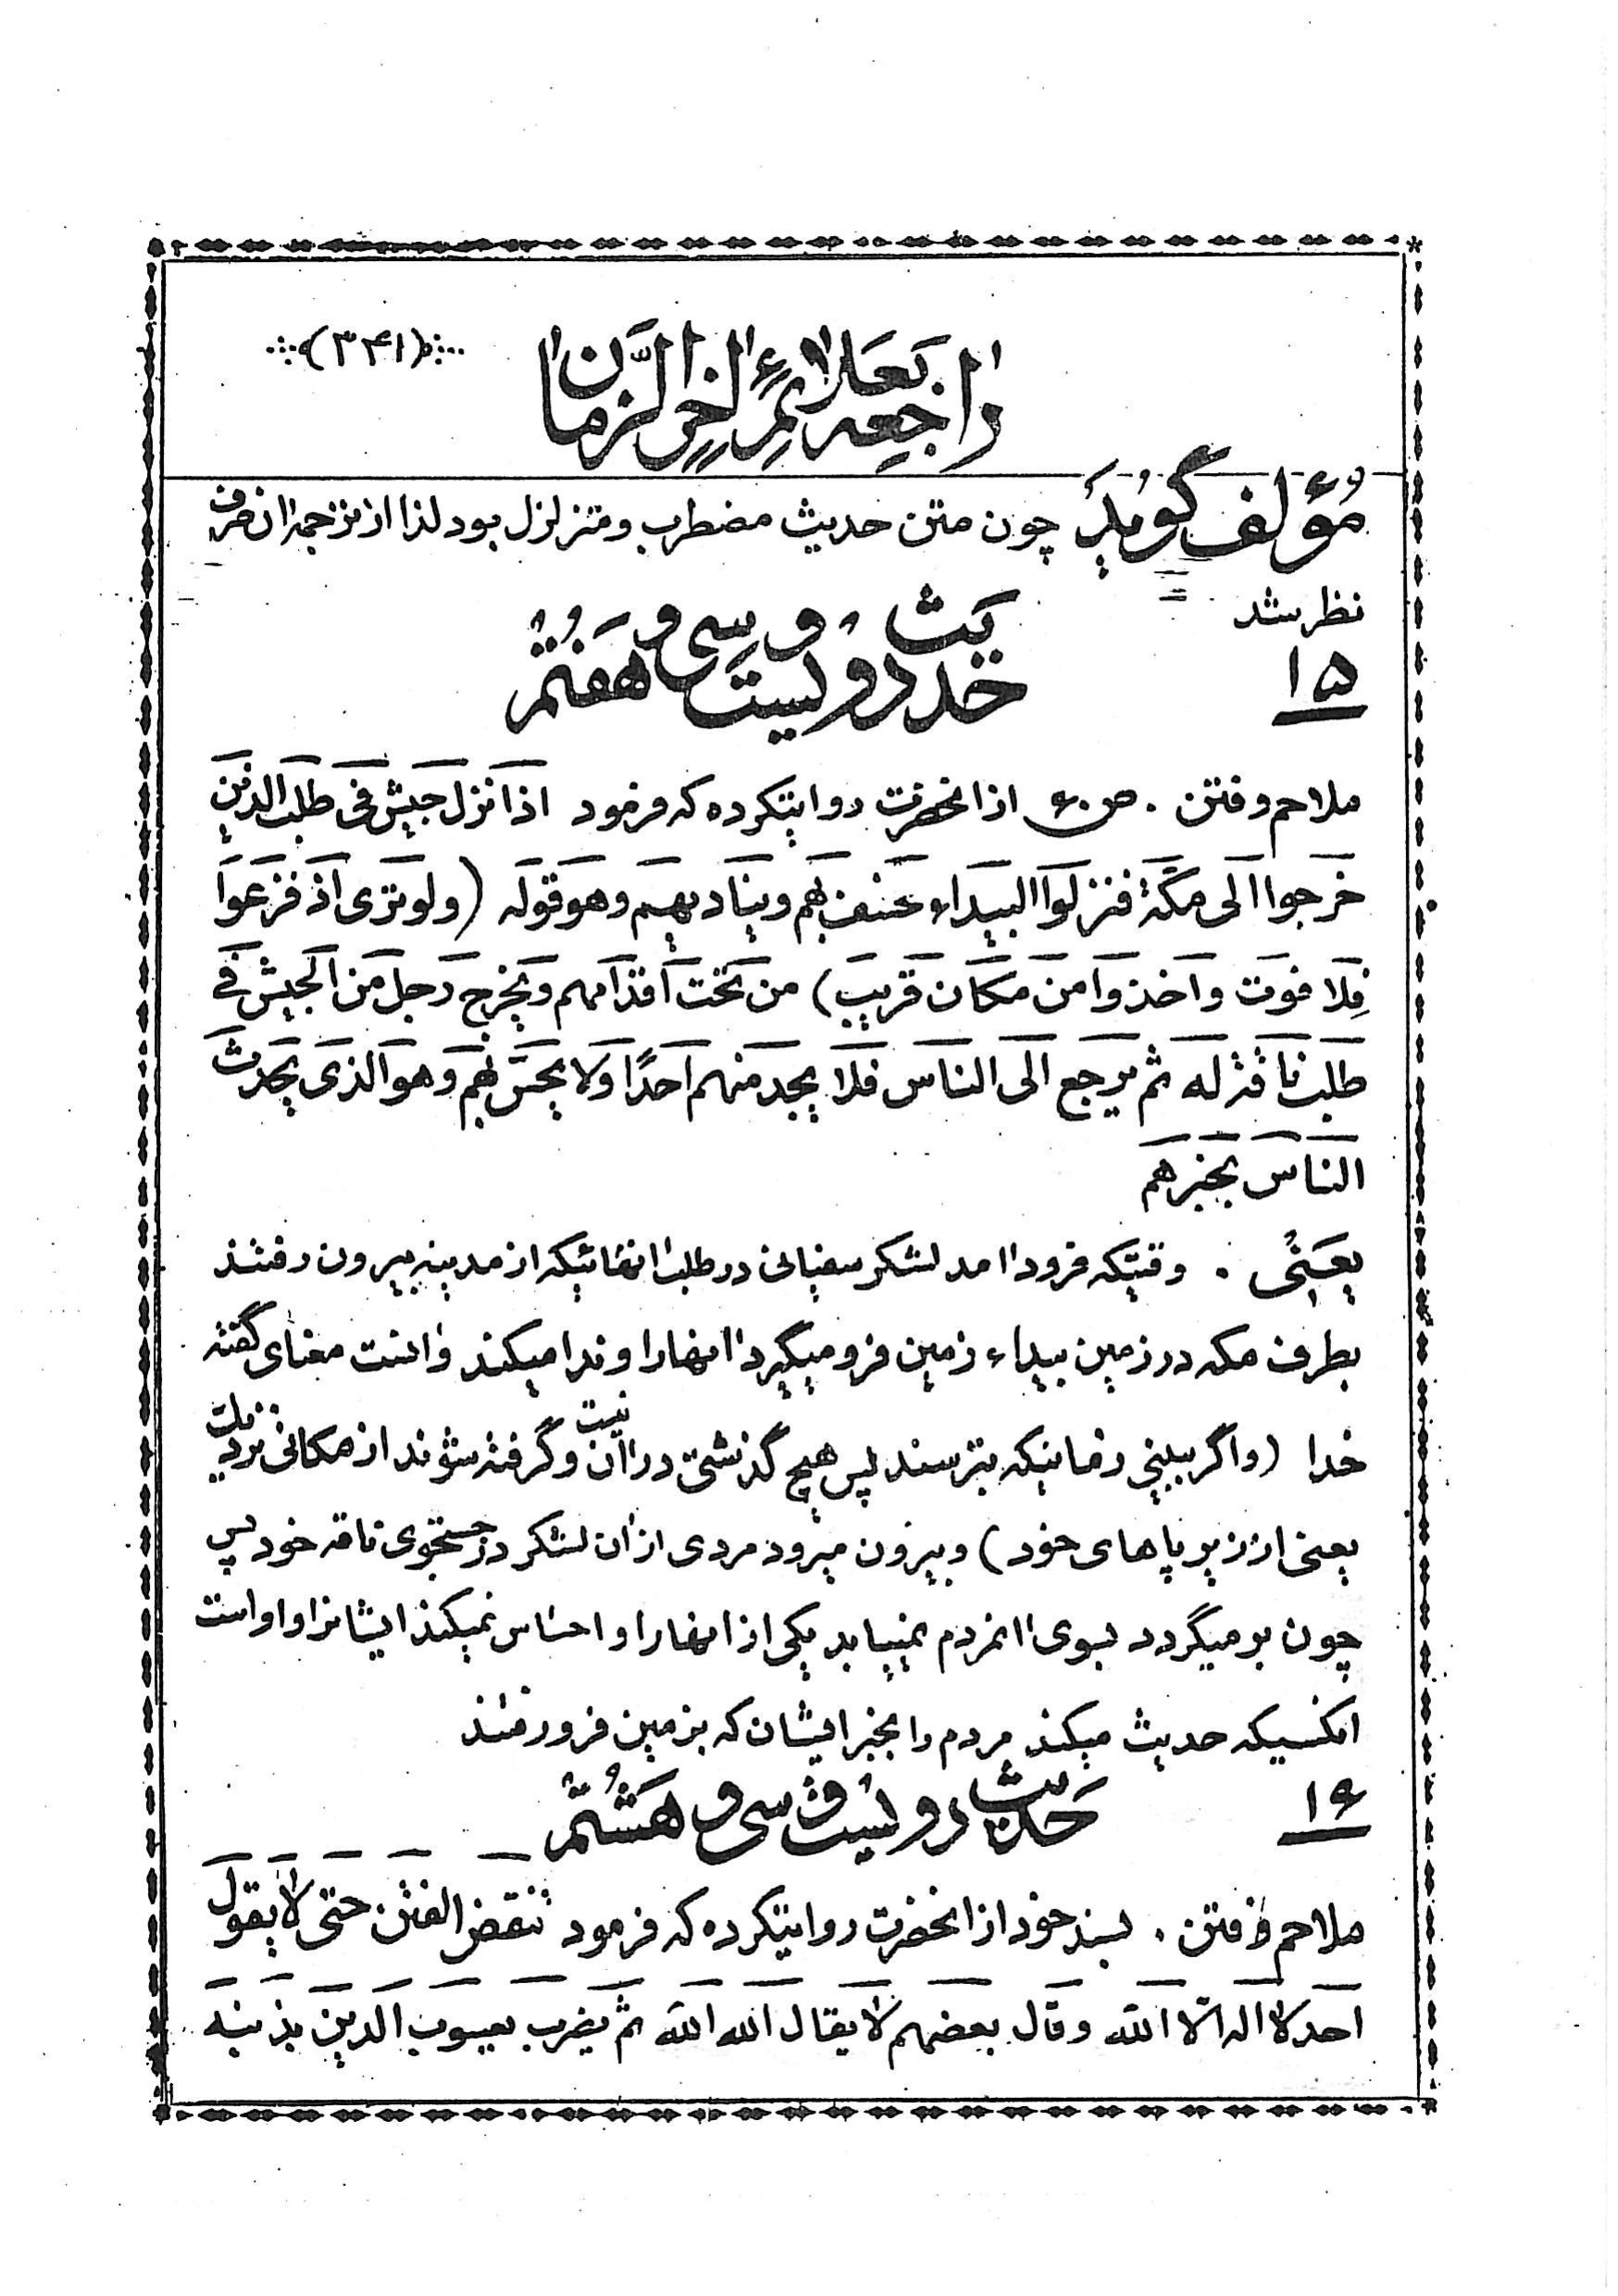 (۳۴۱)
راجعه بعلائم اخر الزمان
مؤلف گوید چون متن حدیث مضطرب و متزلزل بود لذا از ترجمهٔ ان صرف
نظر شد
۱۵
حدیث دویست و سی و هفتم
ملاحم و فتن . ص ۶۰ از انحضرت روایتکرده که فرمود اذا نزل جیش فی طلب الذین
خرجوا الی مکة فنزلوا البیداء خسف بهم ویناد بهم وهو قوله (ولو تری اذ فزعوا
فلا فوت واخذوا من مکان قریب) من تحت اقدامهم ویخرج رجل من الجیش فی
طلب ناقة له ثم یرجع الی الناس فلا یجد منهم احدًا ولا یحسّ بهم وهو الذی یحدث
الناس بخبرهم
یعنی . وقتیکه فرود امد لشکر سفیانی در طلب انهائیکه از مدینه بیرون رفتند
بطرف مکه در زمین بیداء زمین فرو میگیرد انهارا و ندا میکند و انست معنای گفته
خدا (واگر ببینی زمانیکه بترسند پس هیچ گذشتی در ان نیست و گرفته شوند از مکانی نزدیک
یعنی از زیر پاهای خود) و بیرون میرود مردی از ان لشکر در جستجوی ناقه خود پس
چون برمیگردد بسوی انمردم نمییابد یکی از انهارا و احساس نمیکند ایشانرا و او است
انکسیکه حدیث میکند مردم را بخبر ایشان که بزمین فرو رفتند
۱۶
حدیث دویست و سی و هشتم
ملاحم و فتن . بسند خود از انحضرت روایتکرده که فرمود تنقض الفتن حتی لا یقول
احد لا اله الّا الله وقال بعضهم لا یقال الله الله ثم یضرب یعسوب الدین بذنبه